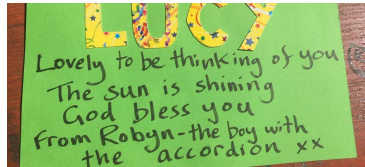 LUCY
Lovely to be thinking of you
The sun is shining
God bless you
From Robyn-the boy with
the accordion xx